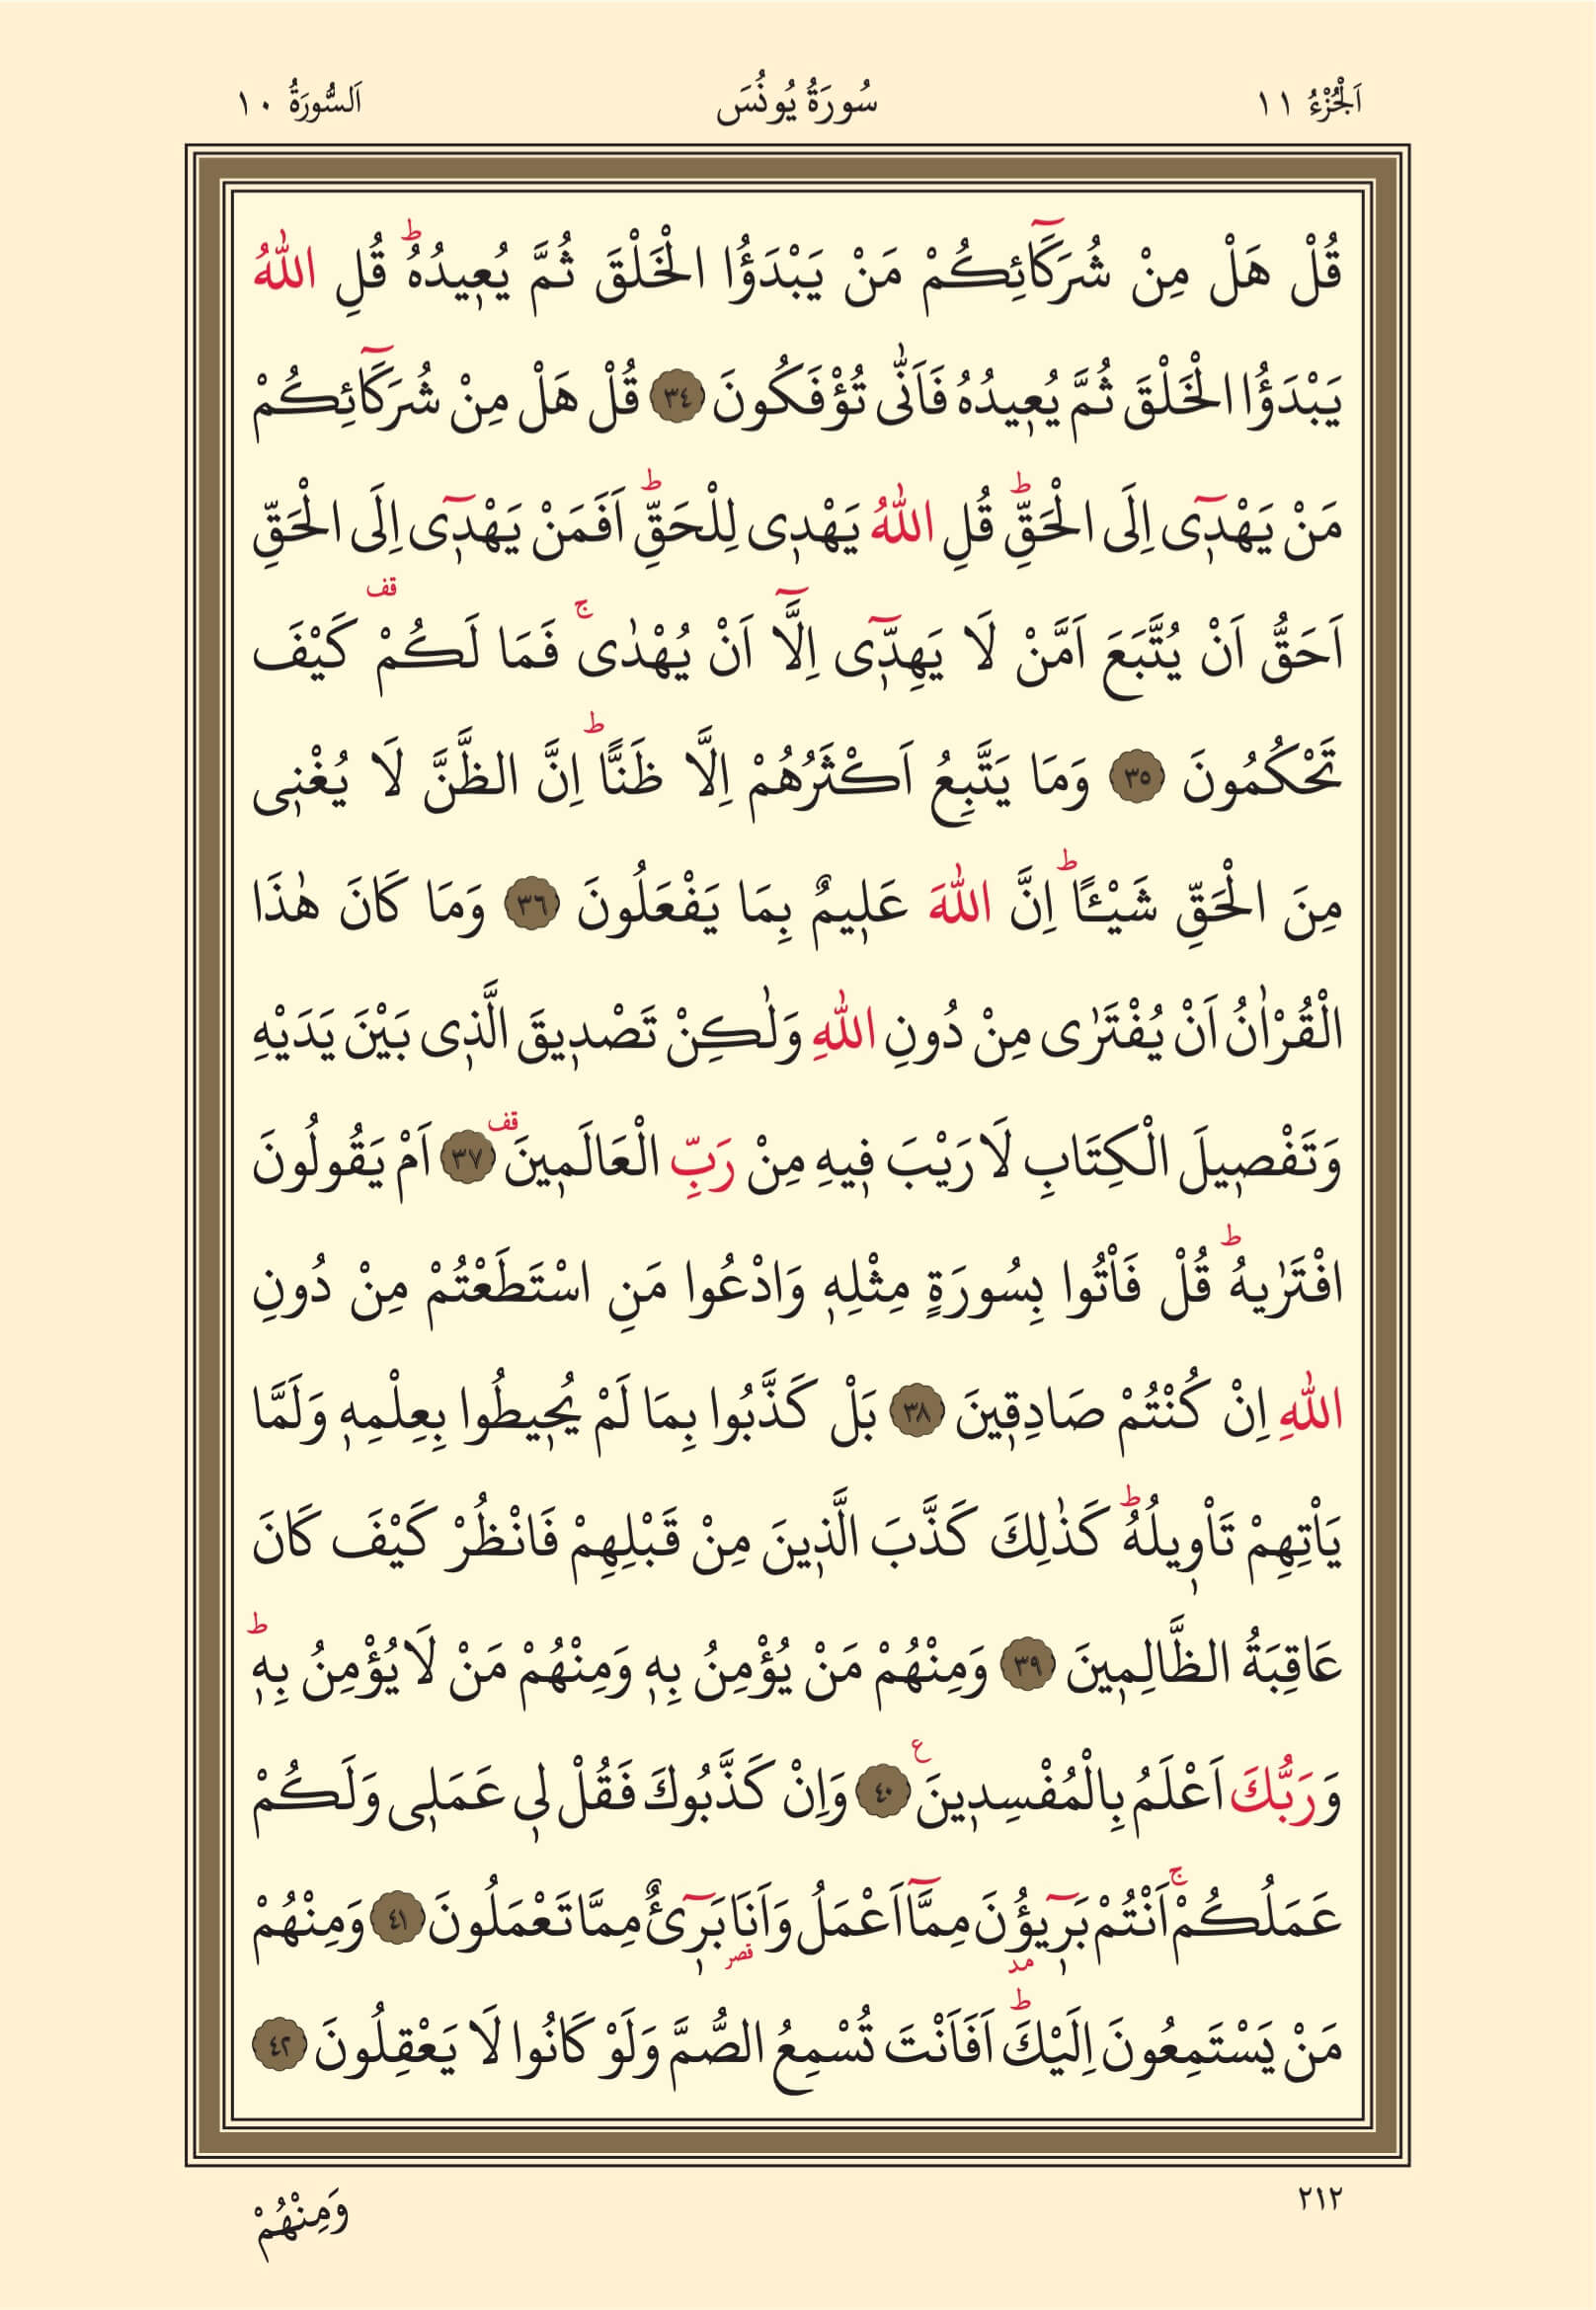 اَلْجُزْءُ ١١ سُورَةُ يُونُسَ اَلسُّورَةُ ١٠
قُلْ هَلْ مِنْ شُرَكَٓائِكُمْ مَنْ يَبْدَؤُا الْخَلْقَ ثُمَّ يُع۪يدُهُۜ قُلِ اللّٰهُ
يَبْدَؤُا الْخَلْقَ ثُمَّ يُع۪يدُهُ فَاَنّٰى تُؤْفَكُونَ ﴿٣٤﴾ قُلْ هَلْ مِنْ شُرَكَٓائِكُمْ
مَنْ يَهْد۪ٓي اِلَى الْحَقِّۜ قُلِ اللّٰهُ يَهْد۪ي لِلْحَقِّۜ اَفَمَنْ يَهْد۪ٓي اِلَى الْحَقِّ
اَحَقُّ اَنْ يُتَّبَعَ اَمَّنْ لَا يَهِدّ۪ٓي اِلَّٓا اَنْ يُهْدٰىۚ فَمَا لَكُمْ قف كَيْفَ
تَحْكُمُونَ ﴿٣٥﴾ وَمَا يَتَّبِعُ اَكْثَرُهُمْ اِلَّا ظَنًّاۜ اِنَّ الظَّنَّ لَا يُغْن۪ي
مِنَ الْحَقِّ شَيْـًٔاۜ اِنَّ اللّٰهَ عَل۪يمٌ بِمَا يَفْعَلُونَ ﴿٣٦﴾ وَمَا كَانَ هٰذَا
الْقُرْاٰنُ اَنْ يُفْتَرٰى مِنْ دُونِ اللّٰهِ وَلٰكِنْ تَصْد۪يقَ الَّذ۪ي بَيْنَ يَدَيْهِ
وَتَفْص۪يلَ الْكِتَابِ لَا رَيْبَ ف۪يهِ مِنْ رَبِّ الْعَالَم۪ينَ قف ﴿٣٧﴾ اَمْ يَقُولُونَ
افْتَرٰيهُۜ قُلْ فَأْتُوا بِسُورَةٍ مِثْلِه۪ وَادْعُوا مَنِ اسْتَطَعْتُمْ مِنْ دُونِ
اللّٰهِ اِنْ كُنْتُمْ صَادِق۪ينَ ﴿٣٨﴾ بَلْ كَذَّبُوا بِمَا لَمْ يُح۪يطُوا بِعِلْمِه۪ وَلَمَّا
يَأْتِهِمْ تَأْو۪يلُهُۜ كَذٰلِكَ كَذَّبَ الَّذ۪ينَ مِنْ قَبْلِهِمْ فَانْظُرْ كَيْفَ كَانَ
عَاقِبَةُ الظَّالِم۪ينَ ﴿٣٩﴾ وَمِنْهُمْ مَنْ يُؤْمِنُ بِه۪ وَمِنْهُمْ مَنْ لَا يُؤْمِنُ بِه۪ۜ
وَرَبُّكَ اَعْلَمُ بِالْمُفْسِد۪ينَ ع ﴿٤٠﴾ وَاِنْ كَذَّبُوكَ فَقُلْ ل۪ي عَمَل۪ي وَلَكُمْ
عَمَلُكُمْۚ اَنْتُمْ بَر۪ٓيؤُ۫نَ مد مِمَّٓا اَعْمَلُ وَاَنَا۬ قصر بَر۪ٓيءٌ مِمَّا تَعْمَلُونَ ﴿٤١﴾ وَمِنْهُمْ
مَنْ يَسْتَمِعُونَ اِلَيْكَۜ اَفَاَنْتَ تُسْمِعُ الصُّمَّ وَلَوْ كَانُوا لَا يَعْقِلُونَ ﴿٤٢﴾
٢١٢ وَمِنْهُمْ